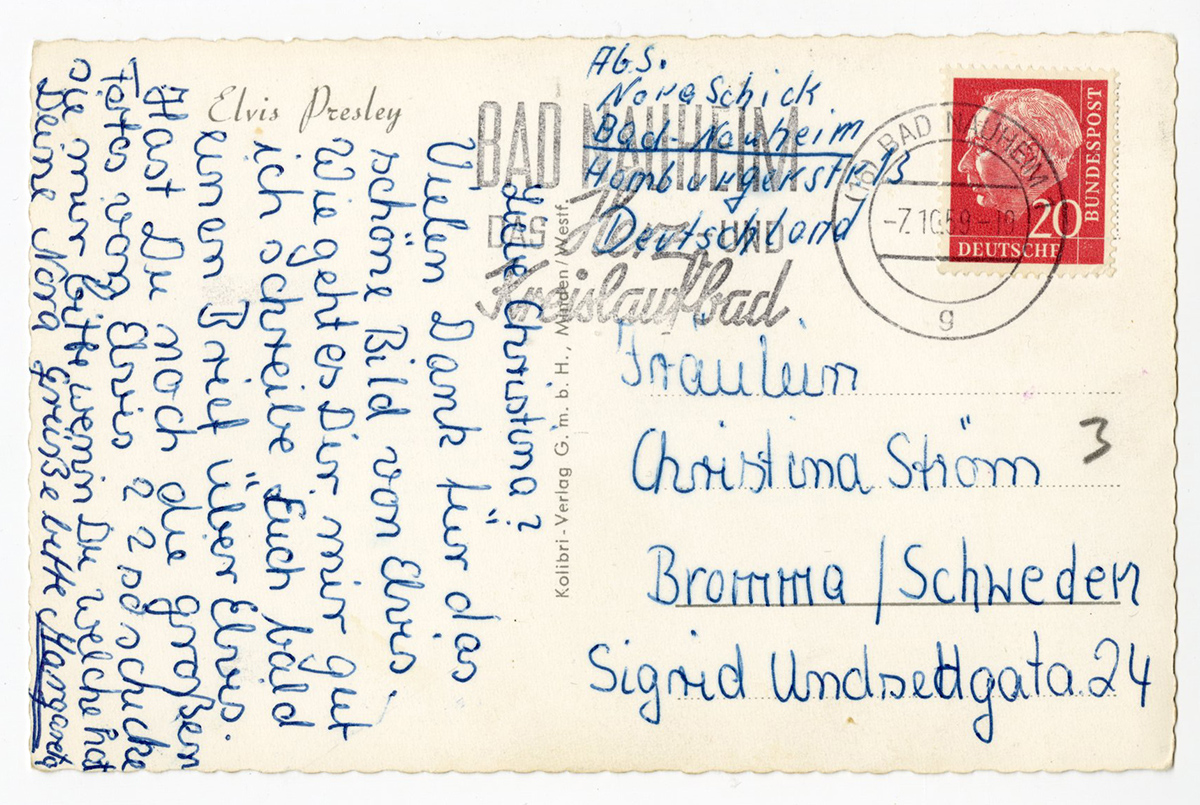 Elvis Presley
Liebe Christina?
Vielen Dank für das
schöne Bild von Elvis.
Wie geht es Dir mir gut
ich schreibe Euch bald
einen Brief über Elvis.
Hast Du noch die großen
Fotos von Elvis
die mir bitte wenn Du welche hat
Deine Nora Grüße bitte Margareta
Kolibri-Verlag G. m. b. H., Minden/Westf.
Abs.
Nora Schick
Bad-Nauheim
Homburgerstr 13
Deutschland
BAD NAUHEIM
DAS Herz UND
Kreislaufbad
(16) BAD NAUHEIM 1
-7.10.59-10
g
20
DEUTSCHE
BUNDESPOST
Fräulein
Christina Ström
3
Bromma / Schweden
Sigrid Undsettgata 24